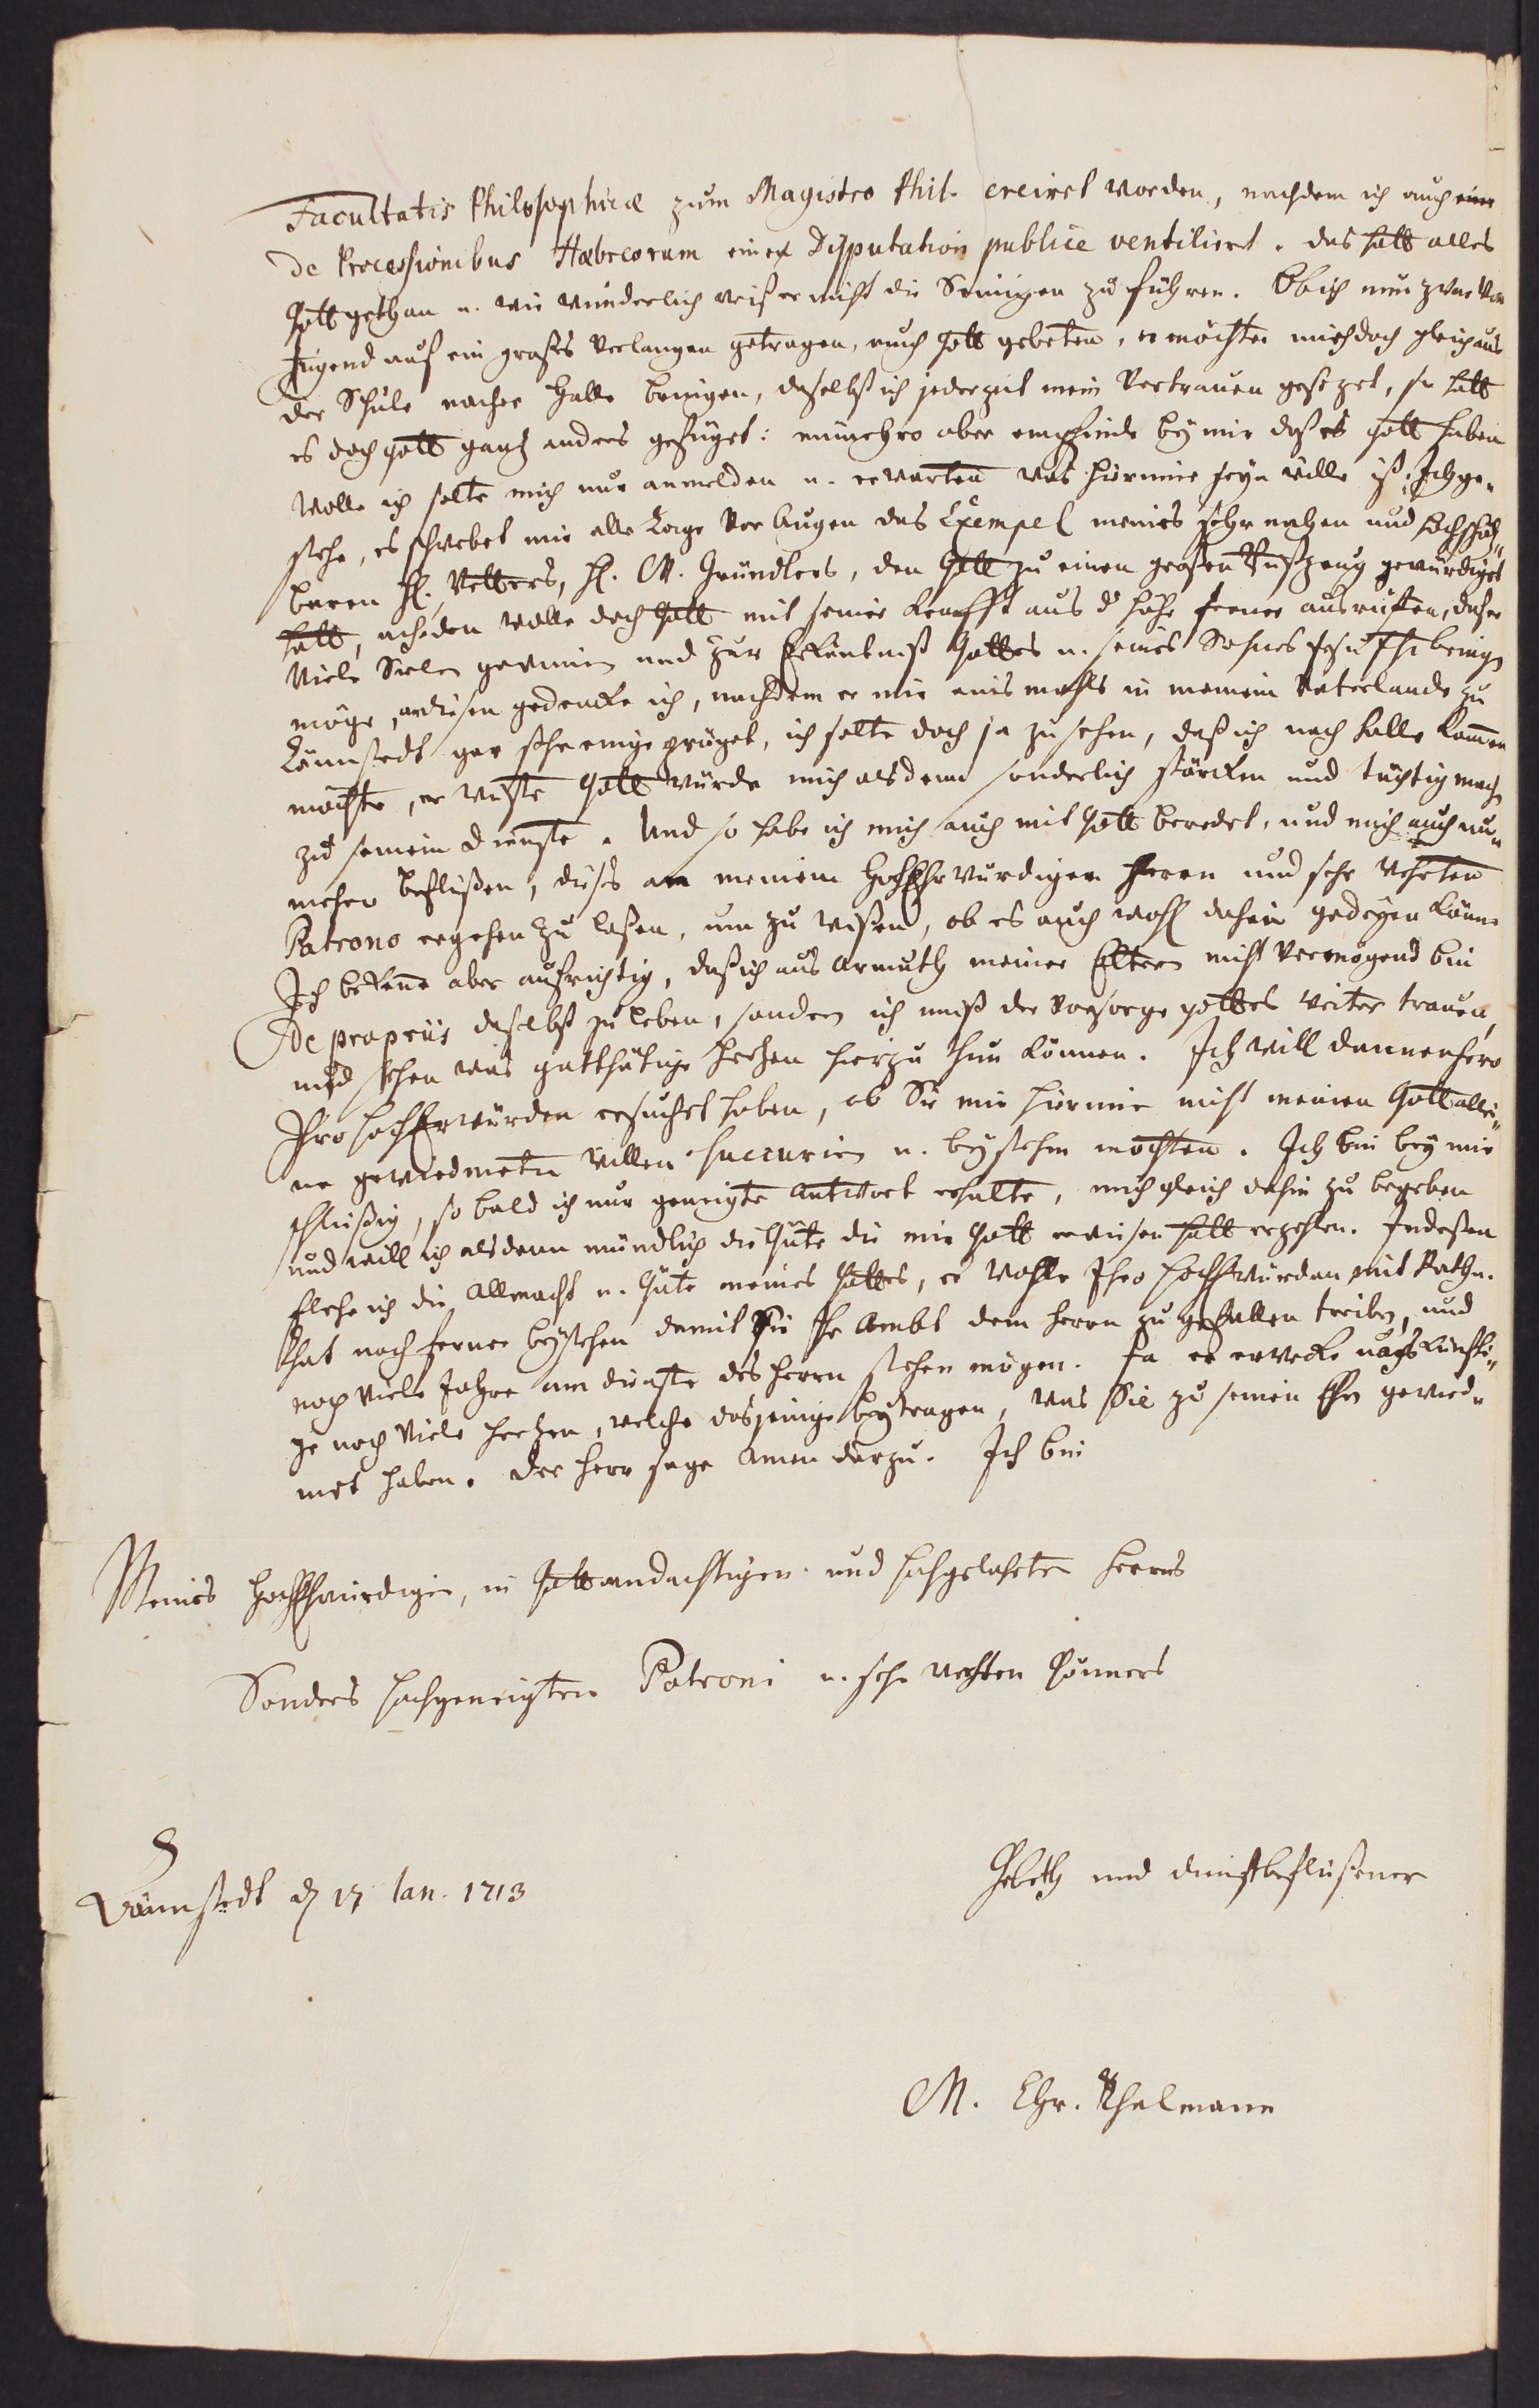 Facultatis Philosophicæ zum Magistro Phil. creiret worden, nachdem ich auch eine
de Processionibus Hæbreorum eine Disputation publice ventiliret. das hatt alles
Gott gethan u. wie wunderlich weiß er nicht die Seinigen zu führen. Ob ich nun zwar von
Jugend auf ein großes Verlangen getragen, auch Gott gebeten, er möchte mich doch gleich aus
der Schule nacher Halle bringen, daselbst ich jederzeit mein Vertrauen gesezet, so hatt
es doch Gott gantz anders gefüget: nunmehro aber empfinde bey mir daß es Gott haben
wolle ich solte mich nur anmelden u. erwarten was hierinne seyn wille ist. Ich ge-
stehe, es schwebet mir alle Tage vor Augen das Exempel meines sehr nahen und hochschätz-
baren H. Vetters, H. M. Gründlers, den Gott zu einen großen Rüstzeug gewürdiget
hatt, ach den wolle doch Gott mit seiner Krafft aus d Höhe ferner ausrüsten, daß er
viele Seelen gewinnen und zur Erkäntniß Gottes u. seines Sohnes Jesu Chr bringen
möge, an diesen gedencke ich, nachdem er mir einsmahls in meinem Vaterlande zu
Tännstedt gar sehr eingepräget, ich solte doch ja zu sehen, daß ich nach Halle kommen
möchte, er wüste Gott würde mich alsdenn sonderlich stärcken und tüchtig machen
zu seinem Dienste. Und so habe ich mich auch mit Gott beredet, und mich auch nun-
mehro beflißen, dieses an meinem HochEhrwürdigen Herrn und sehr wehrten
Patrono ergehen zu laßen, um zu wißen, ob es auch wohl dahin gedeyen könne
Ich bekenne aber aufrichtig, daß ich aus Armuth meiner Eltern nicht vermögend bin
De propriis daselbst zu leben, sondern ich muß der Vorsorge Gottes weiter trauen,
und sehen was gutthätige Hertzen hierzu thun können. Ich will dannenhero
Ihro HochEhrwürden ersuchet haben, ob Sie mir hierinne nicht meinen Gott allei-
ne gewiedmeten willen succuriren u. beystehen möchten. Ich bin bey mir
schlüßig, so bald ich nur geneigte Antwort erhalte, mich gleich dahin zu begeben
und will ich alsdenn mündlich die Güte die mir Gott erwiesen hatt erzehlen. Indeßen
flehe ich die Allmacht u. Güte meines Gottes, er wolle Ihro HochEhrwürden mit Rath u.
that noch ferner beystehen damit Sie Ihr Ambt dem Herrn zu gefallen treiben, und
noch viele Jahre am dienste des Herrn stehen mögen. Ja er erwecke auchs künffti-
ge noch viele Hertzen, welche dasjenige beytragen, was Sie zu seinen Ehren gewied-
met haben. der Herr sage Amen darzu. Ich bin
Meines HochEhrwürdigen, in Gott andächtigen und hochgelahrten Herrns
Sonders hochgeneigten Patroni u. sehr wehrten Gönners
Tännstedt d 17 Jan. 1713
Gebeth und dienstbeflißener
M. Chr. Thalmann